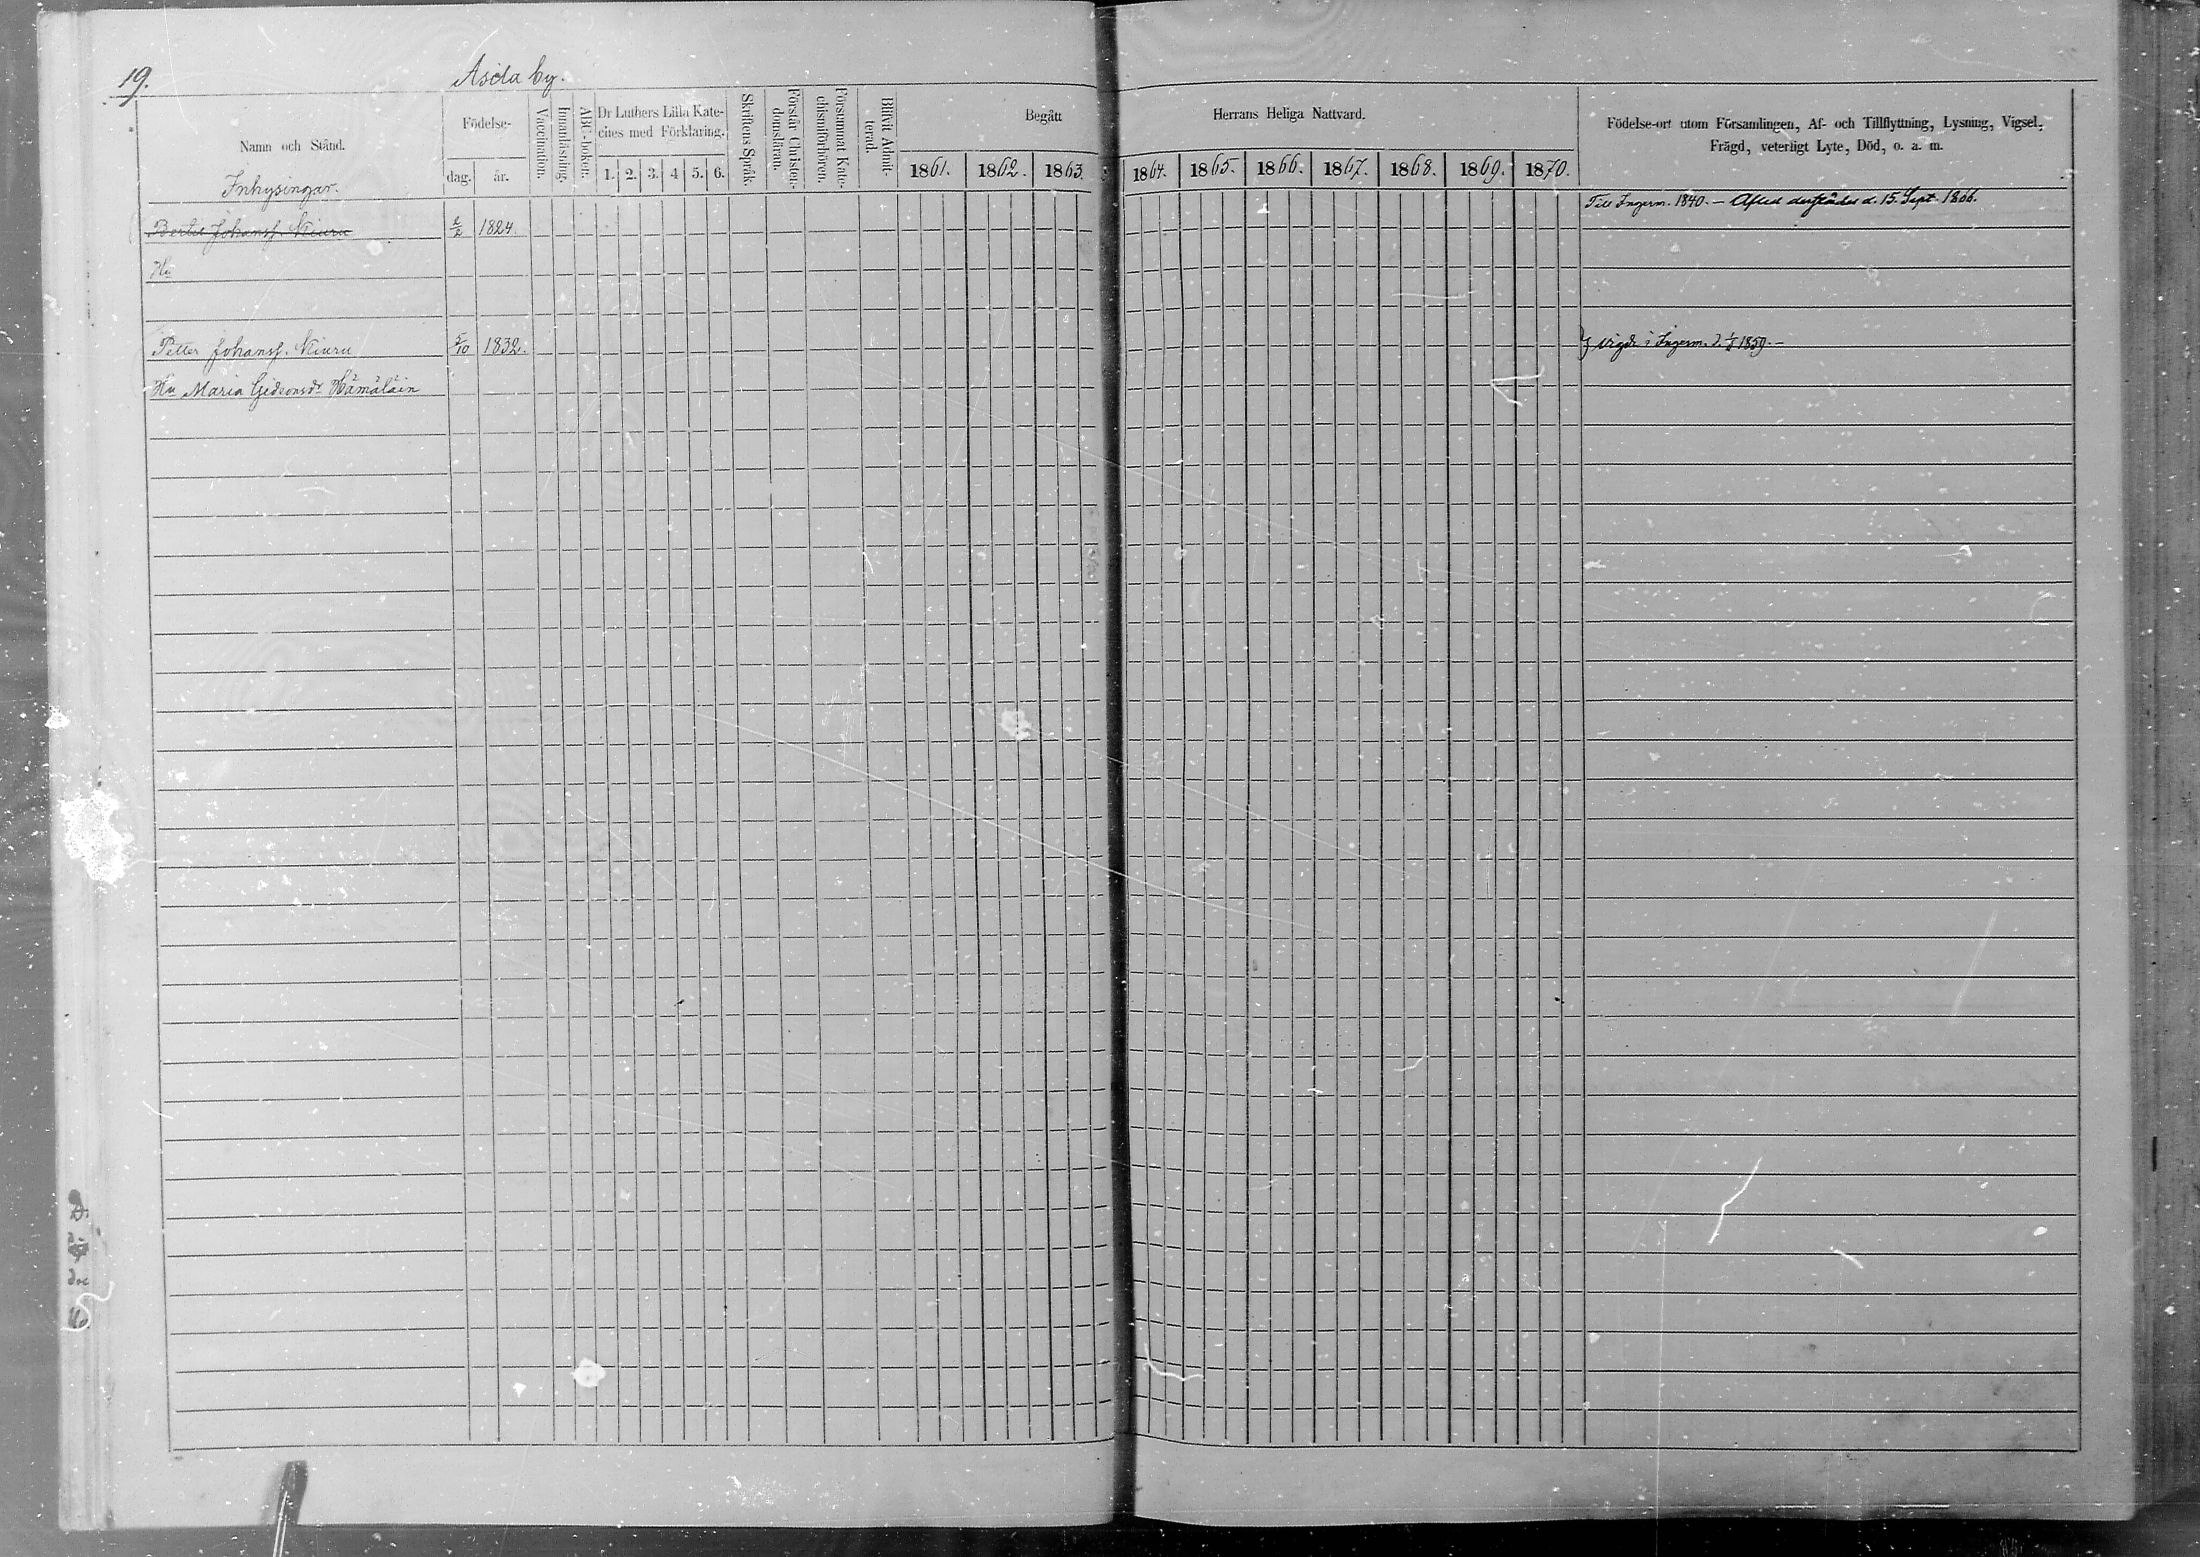 19.
Asila by.
Namn och Stånd.
Födelse-
dag. år.
Vaccination.
Innanläsning.
ABC-boken.
Dr Luthers Lilla Kate-
cines med Förklaring.
1. 2. 3. 4 5. 6.
Skriftens Språk.
Förstår Christen-
domsläran.
Försummat Kate-
chismiförhören.
Blifvit Admit-
terad.
Begått Herrans Heliga Nattvard.
1861. 1862. 1863. 1864. 1865. 1866. 1867. 1868. 1869. 1870.
Födelse-ort utom Församlingen, Af- och Tillflyttning, Lysning, Vigsel,
Frägd, veterligt Lyte, Död, o. a. m.
Inhysingar.
Bertil Johanss. Kiuru 2/2 1824 Till Ingerm. 1840. — Afled derstädes d. 15 Sept. 1866.
Hu
Petter Johanss. Kiuru 5/10 1832. vigde i Ingerm. 1859. —
Hu Maria Gideonsdr Hämäläin